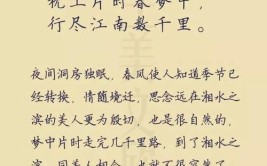 枕上片时春梦中，
行尽江南数千里。
夜间洞房独眠，春风使人知道季节已
经转换，情随境迁，思念远在湘水之
滨的美人更为殷切，也是很自然的，
梦中片时走完几千里路，到了湘水之